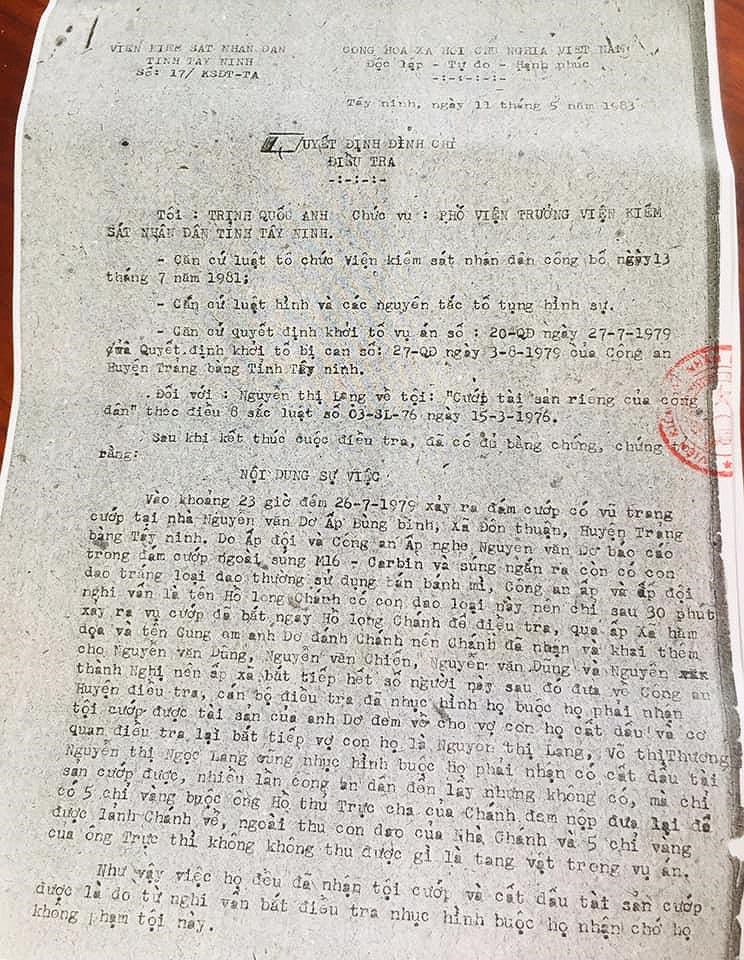 VIỆN KIỂM SÁT NHÂN DÂN
TỈNH TÂY NINH
Số: 17/ KSĐT-TA
CỘNG HÒA XÃ HỘI CHỦ NGHĨA VIỆT NAM
Độc lập - Tự do - Hạnh phúc
-:-:-:-:-
Tây ninh, ngày 11 tháng 5 năm 1983
UYẾT ĐỊNH ĐÌNH CHỈ
ĐIỀU TRA
-:-:-:-
Tôi : TRỊNH QUỐC ANH Chức vụ : PHÓ VIỆN TRƯỞNG VIỆN KIỂM
SÁT NHÂN DÂN TỈNH TÂY NINH.
- Căn cứ luật tổ chức Viện kiểm sát nhân dân công bố ngày13
tháng 7 năm 1981;
- Căn cứ luật hình và các nguyên tắc tố tụng hình sự.
- Căn cứ quyết định khởi tố vụ án số : 20-QĐ ngày 27-7-1979
và Quyết định khởi tố bị can số: 27-QĐ ngày 3-8-1979 của Công an
Huyện Trảng bàng Tỉnh Tây ninh.
Đối với : Nguyễn thị Lang về tội: "Cướp tài sản riêng của công
dân" theo điều 8 sắc luật số 03-SL-76 ngày 15-3-1976.
Sau khi kết thúc cuộc điều tra, đã có đủ bằng chứng, chứng
rằng:
NỘI DUNG SỰ VIỆC
Vào khoảng 23 giờ đêm 26-7-1979 xảy ra đám cướp có vũ trang
cướp tại nhà Nguyễn văn Dơ Ấp Bùng bình, Xã Đôn thuận, Huyện Trảng
bàng Tây ninh. Do ấp đội và Công an ấp nghe Nguyễn văn Dơ báo cáo
trong đám cướp ngoài súng M16 - Carbin và súng ngắn ra còn có con
dao trắng loại dao thường sử dụng bán bánh mì, Công an ấp và ấp đội
nghi vấn là tên Hồ long Chánh có con dao loại này nên chỉ sau 30 phút
xảy ra vụ cướp đã bắt ngay Hồ long Chánh để điều tra, qua ấp Xã hăm
dọa và tên Cung em anh Dơ đánh Chánh nên Chánh đã nhận và khai thêm
cho Nguyễn văn Dũng, Nguyễn văn Chiến, Nguyễn văn Dung và Nguyễn xxx
thành Nghị nên ấp xã bắt tiếp hết số người này sau đó đưa về Công an
Huyện điều tra, cán bộ điều tra đã nhục hình họ buộc họ phải nhận
tội cướp được tài sản của anh Dơ đem về cho vợ con họ cất dấu và cơ
quan điều tra lại bắt tiếp vợ con họ là Nguyễn thị Lang, Võ thịThương
Nguyễn thị Ngọc Lang cũng nhục hình buộc họ phải nhận có cất dấu tài
sản cướp được, nhiều lần công an dẫn đến lấy nhưng không có, mà chỉ
có 5 chỉ vàng buộc ông Hồ thu Trực cha của Chánh đem nộp đưa lại để
được lảnh Chánh về, ngoài thu con dao của Nhà Chánh và 5 chỉ vàng
của ông Trực thì không không thu được gì là tang vật trong vụ án.
Như vậy việc họ đều đã nhận tội cướp và cất dấu tài sản cướp
được là do từ nghi vấn bắt điều tra nhục hình buộc họ nhận chớ họ
không phạm tội này.